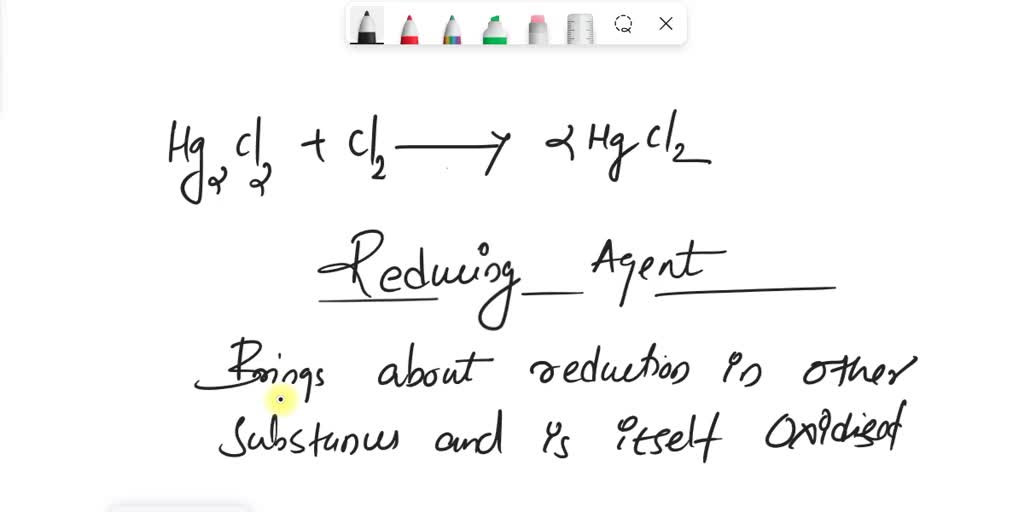 Hg2Cl2 + Cl2 → 2HgCl2
Reducing Agent
Brings about reduction in other
substances and is itself Oxidised